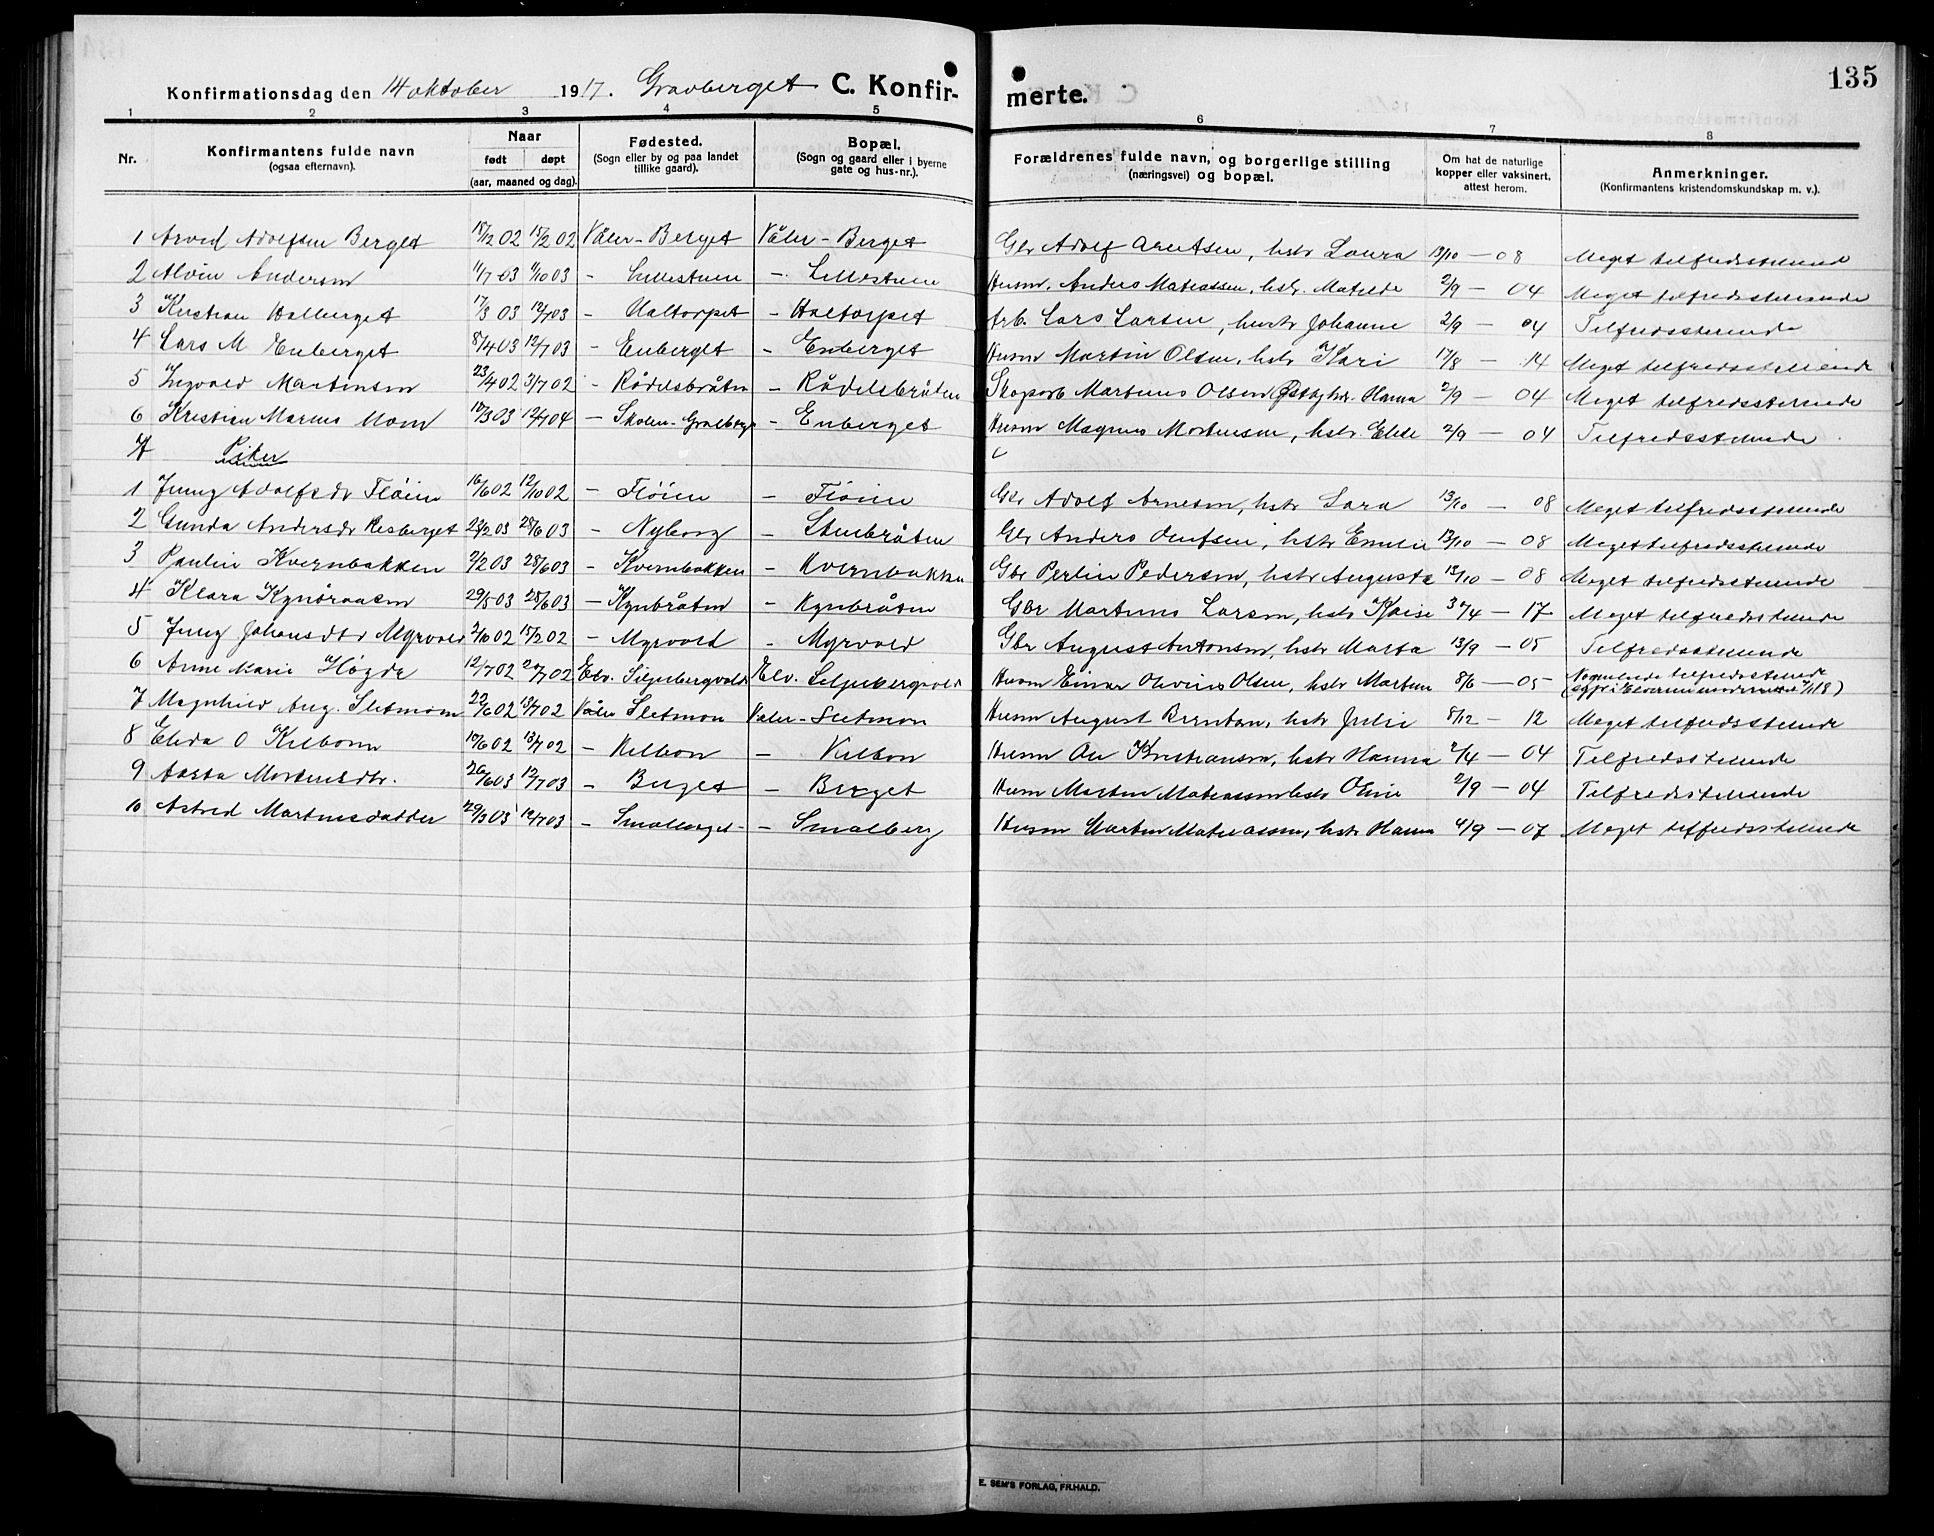 135
Konfirmationsdag den 14 oktober 1917. Gravberget C. Konfirmerte.
1 2 3 4 5 6 7 8
Nr. Konfirmantens fulde navn (ogsaa efternavn). Naar født døpt (aar, maaned og dag). Fødested. (Sogn eller by og paa landet tillike gaard). Bopæl. (Sogn og gaard eller i byerne gate og hus-nr.). Forældrenes fulde navn, og borgerlige stilling (næringsvei) og bopæl. Om hat de naturlige kopper eller vaksinert, attest herom. Anmerkninger. (Konfirmantens kristendomskundskap m. v.).
1 Arvid Adolfsen Berget 02 15/2 02 Våler - Berget Våler - Berget Gbr Adolf Arntsen, hstr Laura 13/10 - 08 Meget tilfredsstillende
2 Alvin Andersen 11/7 03 11/10 03 - Lillestuen - Lillestuen Husm. Anders Mateassen, hstr. Matilde 2/9 - 04 Meget tilfredsstillende
3 Kristian Halberget 17/3 03 12/7 03 - Haltorpet - Haltorpet Arb. Lars Larsen, hustr Johanne 2/9 - 04 Tilfredsstillende
4 Lars M Enberget 8/4 03 12/7 03 - Enberget - Enberget Husm Martin Olsen, hstr Kari 17/8 - 14 Meget tilfredsstillende
5 Ingvald Martinsen 23/4 02 3/7 02 - Rådelsbråten - Rådelsbråten Skogarb Martinus Olsen hstr. Hanna 2/9 - 04 Meget tilfredsstillende
6 Kristian Marius Moen 03 12/7 04 - Skolen - Gravberget - Enberget Husm Magnus Mortensen, hstr. Elide 2/9 - 04 Tilfredsstillende
Piker
1 Jenny Adolfsdr Fløien 16/6 02 12/10 02 - Fløien - Fløien Gbr Adolf Arnesen, hstr Lara 13/10 - 08 Meget tilfredsstillende
2 Gunda Andersdr Risberget 23/2 03 28/6 03 - Nyborg - Stenbråten Gbr Anders Olufsen, hstr Emelie 13/10 - 08 Meget tilfredsstillende
3 Paulin Kvernbakken 2/2 03 28/6 03 - Kvernbakken - Kvernbakken Gbr Perlin Pedersen, hstr Augusta 13/10 - 08 Meget tilfredsstillende
4 Klara Kynbraaten 29/5 03 28/6 03 - Kynbråten - Kynbråten Gbr Martinus Larsen, hstr Kaise 3/4 - 17 Meget tilfredsstillende
5 Jenny Johansdtr Myrvold 2/10 02 15/2 02 - Myrvold - Myrvold Gbr August Antonsen, hstr Marta 13/9 - 05 Tilfredsstillende
6 Anne Marie Høgda 12/7 02 20/7 02 Elv. Siljubergvold Elv. Siljubergvold Husm Einar Olivius Olsen, hstr Marten 8/6 - 05 Nogenlunde tilfredsstillende
7 Magnhild Aug. Sletmoen 22/6 02 13/7 02 Våler Sletmon Våler - Sletmon Husm August Berntsen, hstr Julie 8/12 - 12 Meget tilfredsstillende
8 Elida O Kilbonn 10/6 02 13/7 02 - Kilbon - Kilbon Husm Ole Kristiansen, hstr Hanna 2/4 - 04 Tilfredsstillende
9 Aasta Mortensdtr. 20/6 03 12/7 03 - Berget - Berget Husm Martin Mateassen hstr Oline 2/9 - 04 Tilfredsstillende
10 Astrid Martinsdatter 29/3 03 12/7 03 - Smalberget - - Smalberg Husm Martin Mateassen, hstr Hanna 4/9 - 07 Meget tilfredsstillende
E. SEM'S FORLAG, FR.HALD.